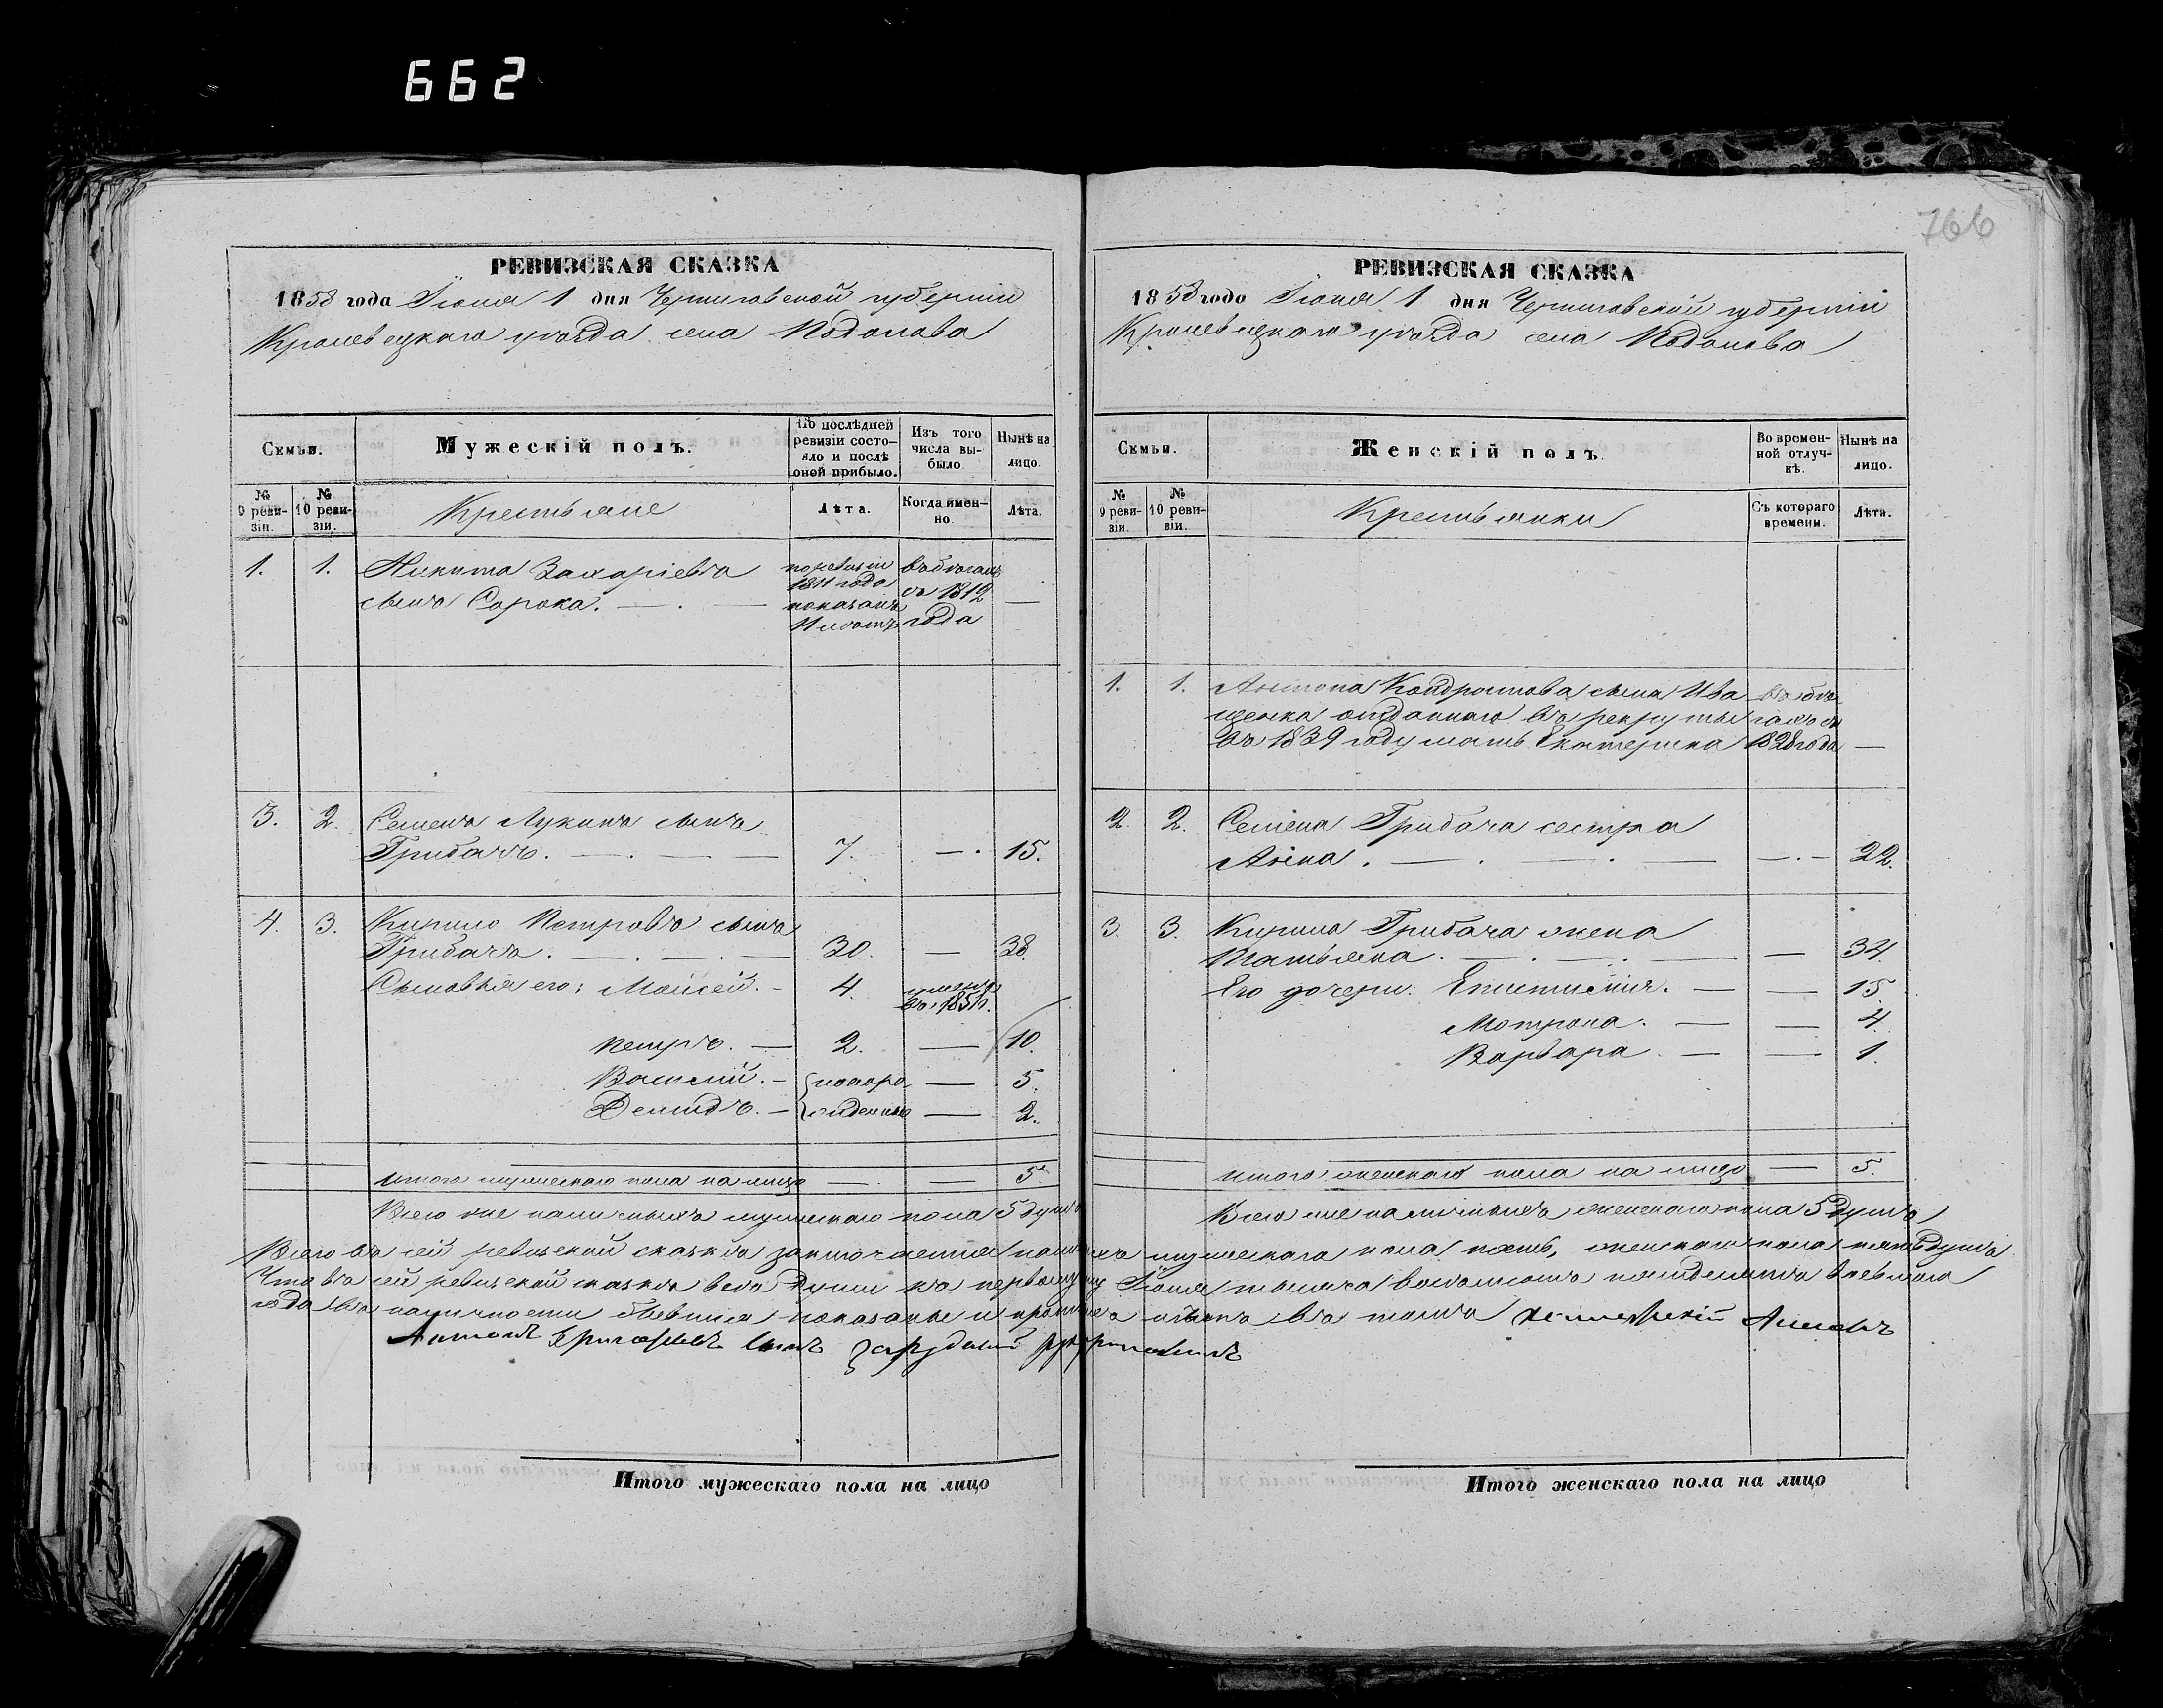 662
766
РЕВИЗСКАЯ СКАЗКА
1858 года Іюня 1 дня Черниговской губерніи
Кролевецкаго уѣзда села Подолова
Семьи.
Мужескій полъ.
По послѣдней ревизіи состояло и послѣ оной прибыло.
Изъ того числа выбыло.
Нынѣ на лицо.
№ 9 ревизіи.
№ 10 ревизіи.
Крестьяне
Лѣта.
Когда именно.
Лѣта.
1. 1. Никита Захаріевъ по ревизіи въ бѣгахъ
1811 года съ 1812
сынъ Сорока. — . — показанъ —
11 лѣтъ года
3. 2. Семенъ Лукинъ сынъ
Грибачъ. — . — — 7. — . 15.
4. 3. Кирило Петровъ сынъ
Грибачъ. — . — . — 30. — 38.
Сыновья его: Моисей. — 4. умеръ
въ 185
Петръ. — 2. — 10.
Василій. — послѣ ре — 5.
Демидъ. — — 2.
Итого мужескаго пола на лицо — . — 5
Всего же наличныхъ мужескаго пола 5 душъ
РЕВИЗСКАЯ СКАЗКА
1858 года Іюня 1 дня Черниговской губерніи
Кролевецкаго уѣзда села Подолова
Семьи.
Женскій полъ
Во временной отлучкѣ.
Нынѣ на лицо.
№ 9 ревизіи.
№ 10 ревизіи.
Крестьянки
Съ котораго времени.
Лѣта.
1. 1. Антона Кондратова сына Ива въ бѣ
щенка отданнаго въ рекруты гахъ съ
въ 1839 году мать Екатерина 1828 года —
2. 2. Семена Грибача сестра
Анна. — . — . — — . — 22.
3. 3. Кирила Грибача жена
Татьяна. — . — . — — 34.
Его дочери: Епистимія. — — 15.
Мотрона. — — 4.
Варвара. — — 1.
Итого женскаго пола на лицо — 5.
Всего же наличныхъ женскаго пола 5 душъ
Всего въ сей ревизской сказкѣ заключается мужескаго пола пять, женскаго пола пять душъ
Что въ сей ревизской сказкѣ всѣ души къ первому Іюня тысяча восемьсотъ пятьдесятъ восьмаго
года въ наличности бывшія показаны и въ томъ
Антонъ Григорьевъ сынъ
Итого мужескаго пола на лицо
Итого женскаго пола на лицо